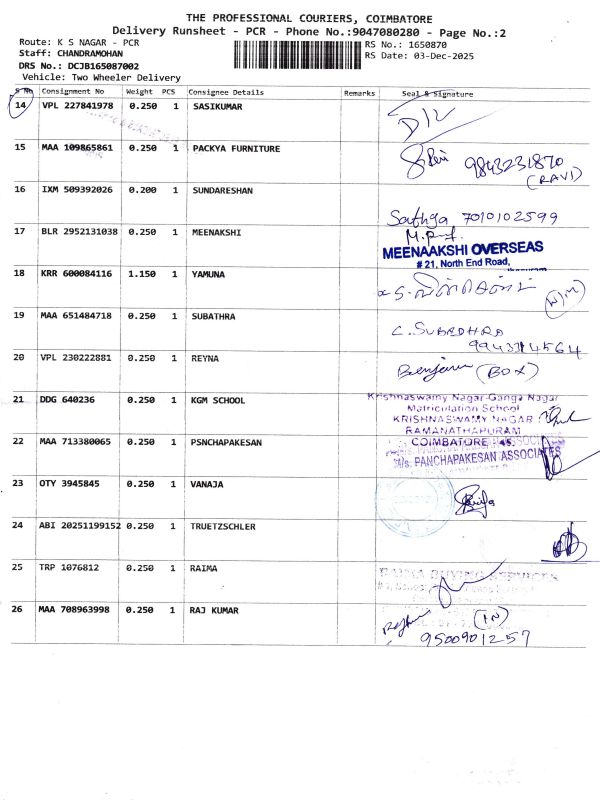 THE PROFESSIONAL COURIERS, COIMBATORE
Delivery Runsheet - PCR - Phone No.:9047080280 - Page No.:2
Route: K S NAGAR - PCR
RS No.: 1650870
Staff: CHANDRAMOHAN
RS Date: 03-Dec-2025
DRS No.: DCJB165087002
Vehicle: Two Wheeler Delivery
S No Consignment No Weight PCS Consignee Details Remarks Seal & Signature
14 VPL 227841978 0.250 1 SASIKUMAR
15 MAA 109865861 0.250 1 PACKYA FURNITURE 9843231870
(RAVI)
16 IXM 509392026 0.200 1 SUNDARESHAN
Sathya 7010102599
17 BLR 2952131038 0.250 1 MEENAKSHI
MEENAAKSHI OVERSEAS
# 21, North End Road,
18 KRR 600084116 1.150 1 YAMUNA
19 MAA 651484718 0.250 1 SUBATHRA
C. SUBEDHRA
20 VPL 230222881 0.250 1 REYNA
Benjamin (BOX)
21 DDG 640236 0.250 1 KGM SCHOOL
Krishnaswamy Nagar-Ganga Nagar
Matriculation School
KRISHNASWAMY NAGAR
RAMANATHAPURAM
COIMBATORE 45.
22 MAA 713380065 0.250 1 PSNCHAPAKESAN
M/s. PANCHAPAKESAN ASSOCIATES
23 OTY 3945845 0.250 1 VANAJA
24 ABI 20251199152 0.250 1 TRUETZSCHLER
25 TRP 1076812 0.250 1 RAIMA
RAIMA BUYING SERVICES
26 MAA 708963998 0.250 1 RAJ KUMAR
(IN)
9500901257